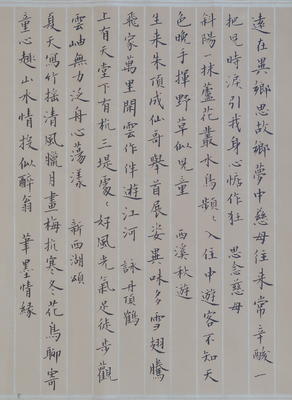 遠在異鄉思故鄉夢中慈母往來常辛酸一
把兒時淚引我身心惦作狂 思念慈母
斜陽抹蘆花叢水鳥頻〻入住中遊客不知天
色晚手揮野草似兒童 西溪秋遊
生來朱頂成仙哥舉首展姿無味多雪翅騰
飛家萬里閒雲作伴遊江河 詠丹頂鶴
上有天堂下有杭三堤處〻好風光氣足徒步觀
雲岫無力泛舟心蕩漾 新西湖頌
夏天寫竹搖清風臘月畫梅抗寒冬花鳥聊寄
童心趣山水情投似醉翁 筆墨情緣